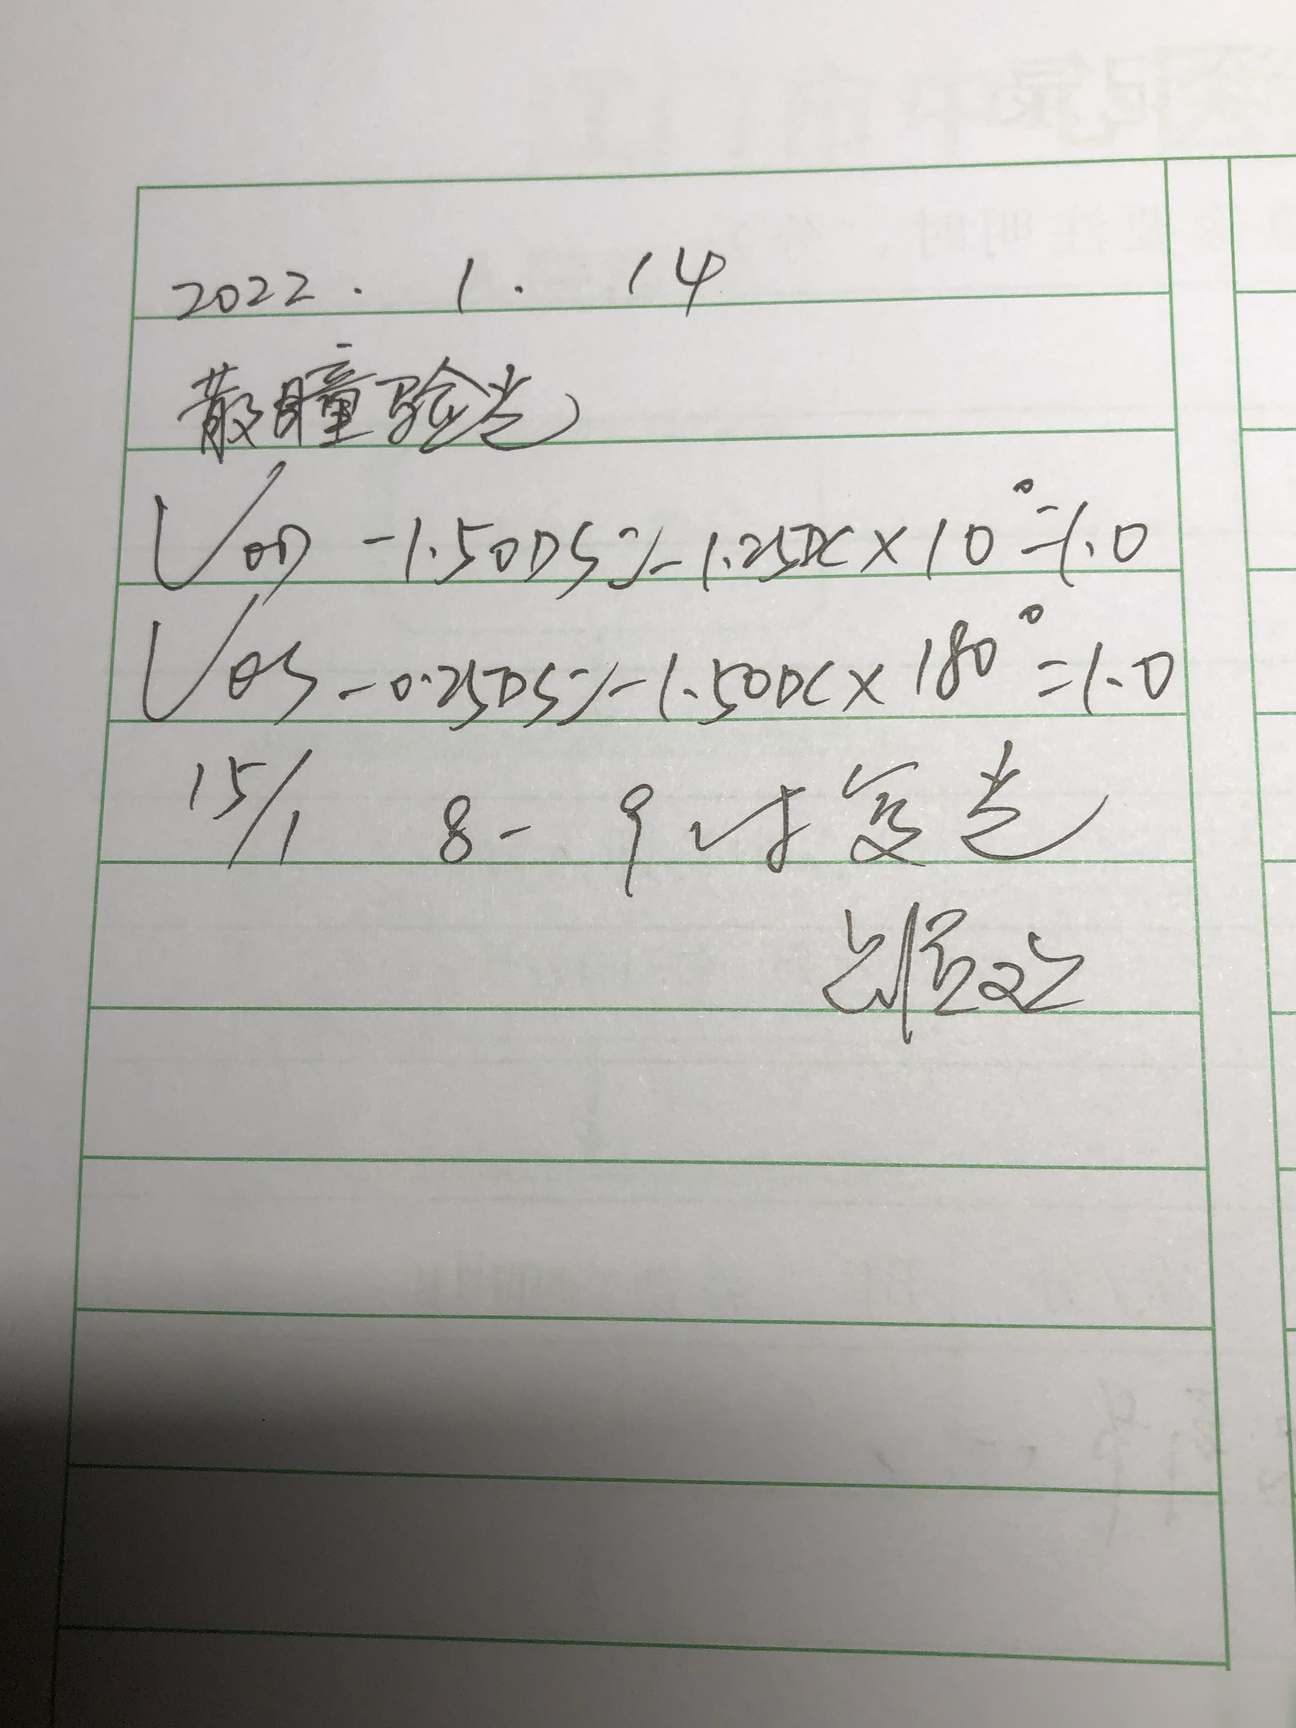 2022. 1. 14
散瞳验光
VOD -1.50DS/-1.25DC×10°=1.0
VOS -0.25DS/-1.50DC×180°=1.0
15/1 8-9时复光